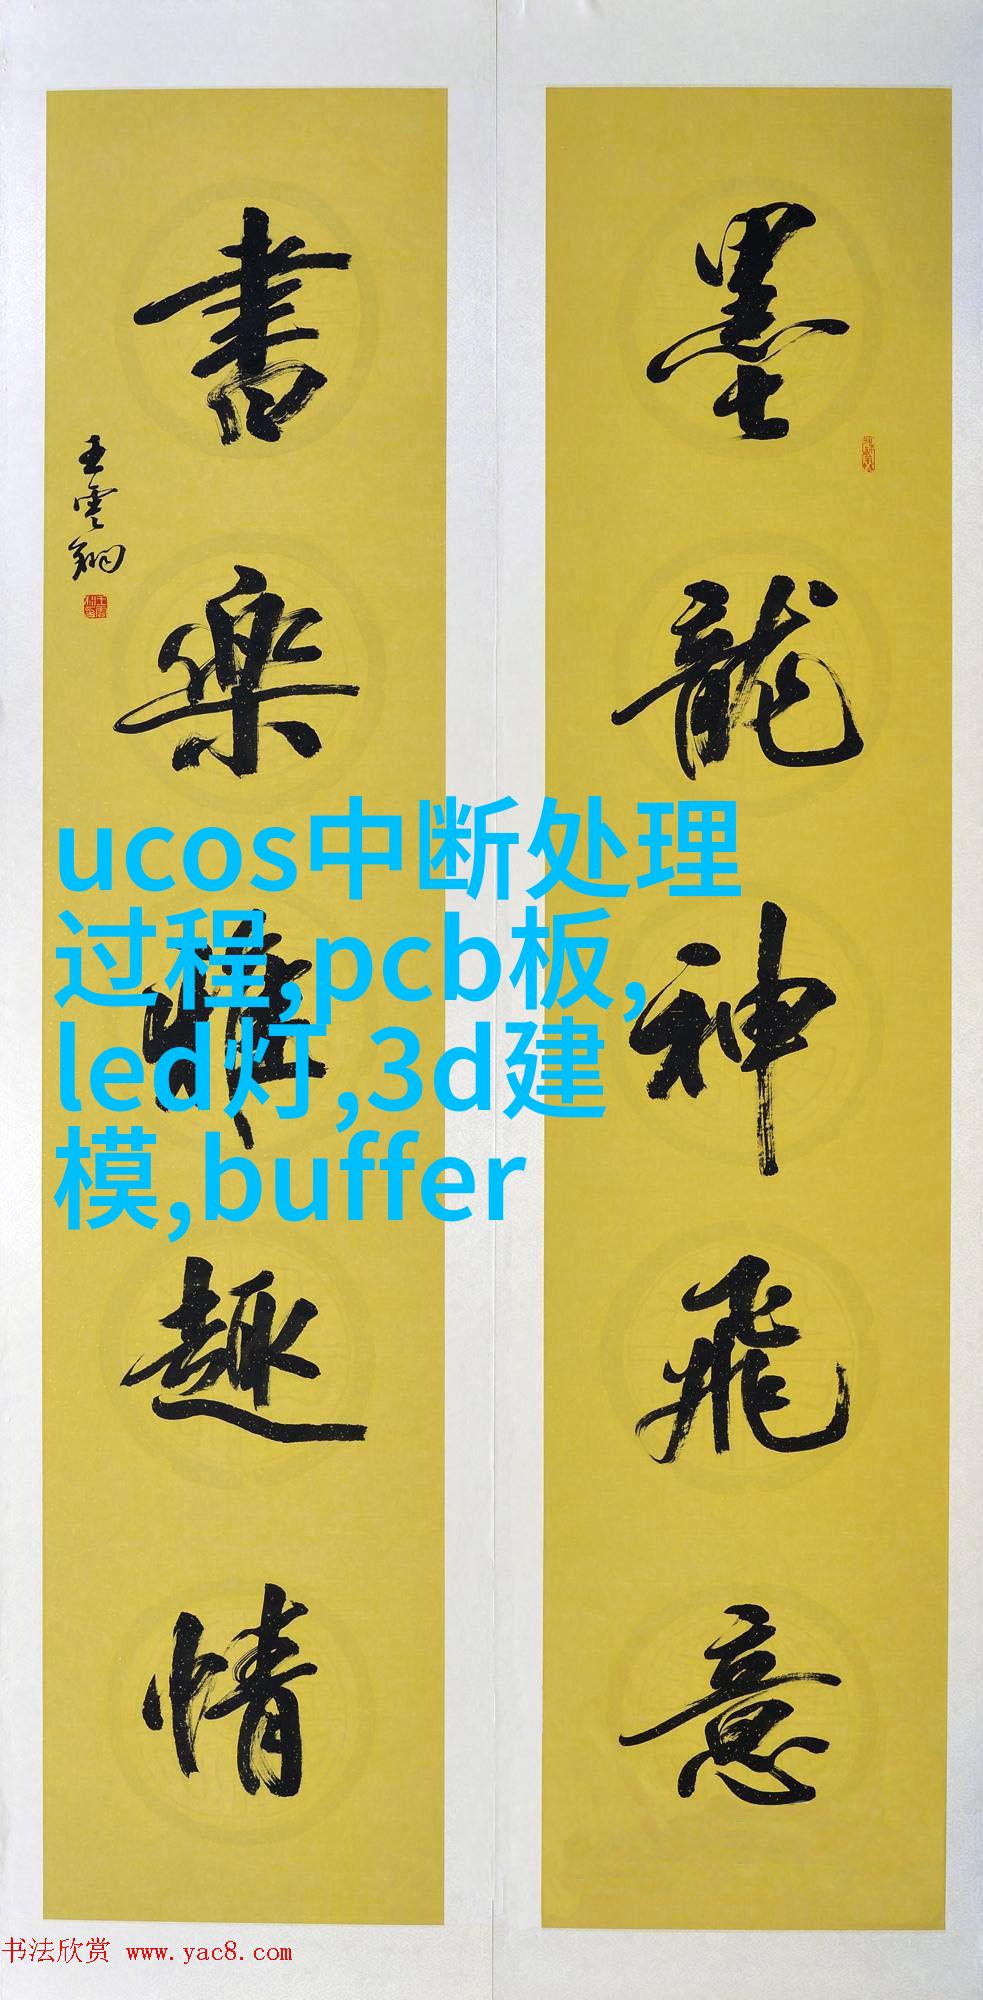 墨龍神飛意
書樂雅趣情
王雲翔
ucos中断处理
过程,pcb板,
led灯,3d建
模,buffer
书法欣赏 www.yac8.com